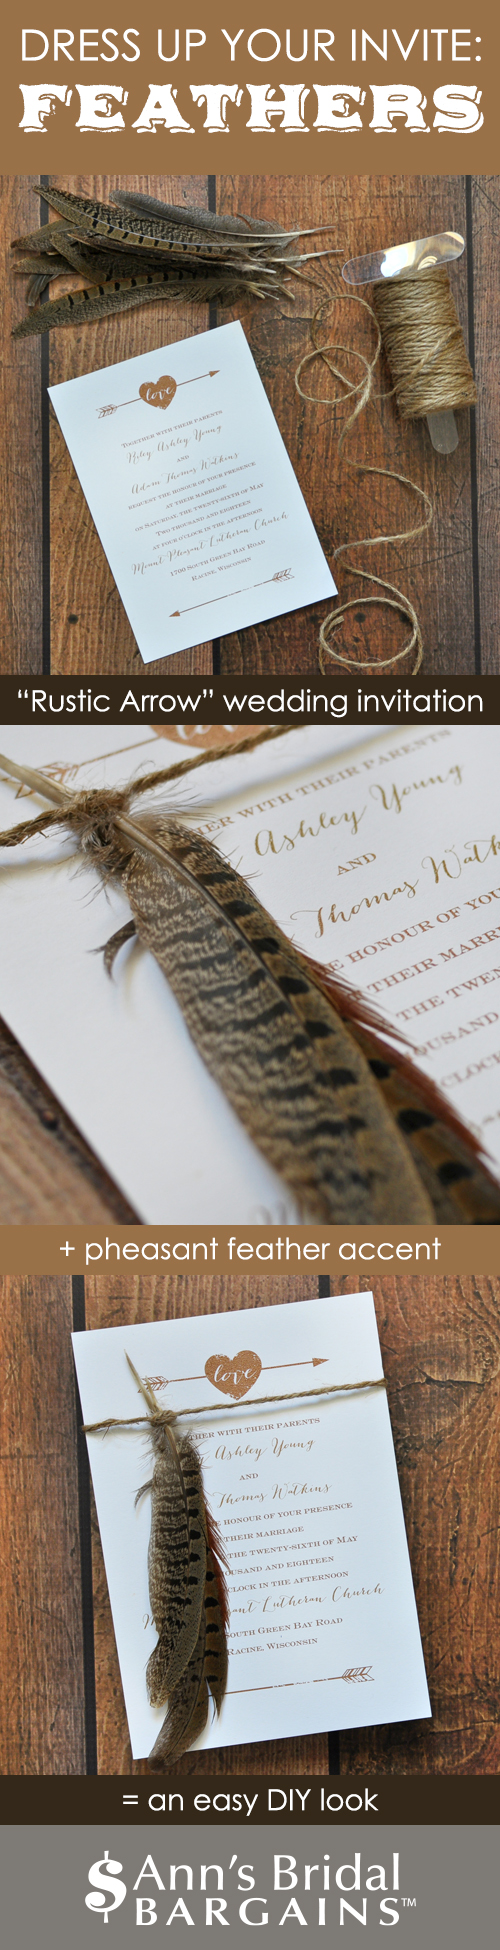 DRESS UP YOUR INVITE:
FEATHERS
love
TOGETHER WITH THEIR PARENTS
Riley Ashley Young
AND
Adam Thomas Watkins
REQUEST THE HONOUR OF YOUR PRESENCE
AT THEIR MARRIAGE
ON SATURDAY, THE TWENTY-SIXTH OF MAY
TWO THOUSAND AND EIGHTEEN
AT FOUR O'CLOCK IN THE AFTERNOON
Mount Pleasant Lutheran Church
1700 SOUTH GREEN BAY ROAD
RACINE, WISCONSIN
“Rustic Arrow” wedding invitation
love
THER WITH THEIR PARENTS
Ashley Young
AND
Thomas Watk
E HONOUR OF YOU
THEIR MARRI
THE TWEN
OUSAND
CLOCK
+ pheasant feather accent
love
THER WITH THEIR PARENTS
Ashley Young
AND
Thomas Watkins
HE HONOUR OF YOUR PRESENCE
THEIR MARRIAGE
THE TWENTY-SIXTH OF MAY
OUSAND AND EIGHTEEN
CLOCK IN THE AFTERNOON
M asant Lutheran Church
SOUTH GREEN BAY ROAD
RACINE, WISCONSIN
= an easy DIY look
$ Ann's Bridal
BARGAINS™